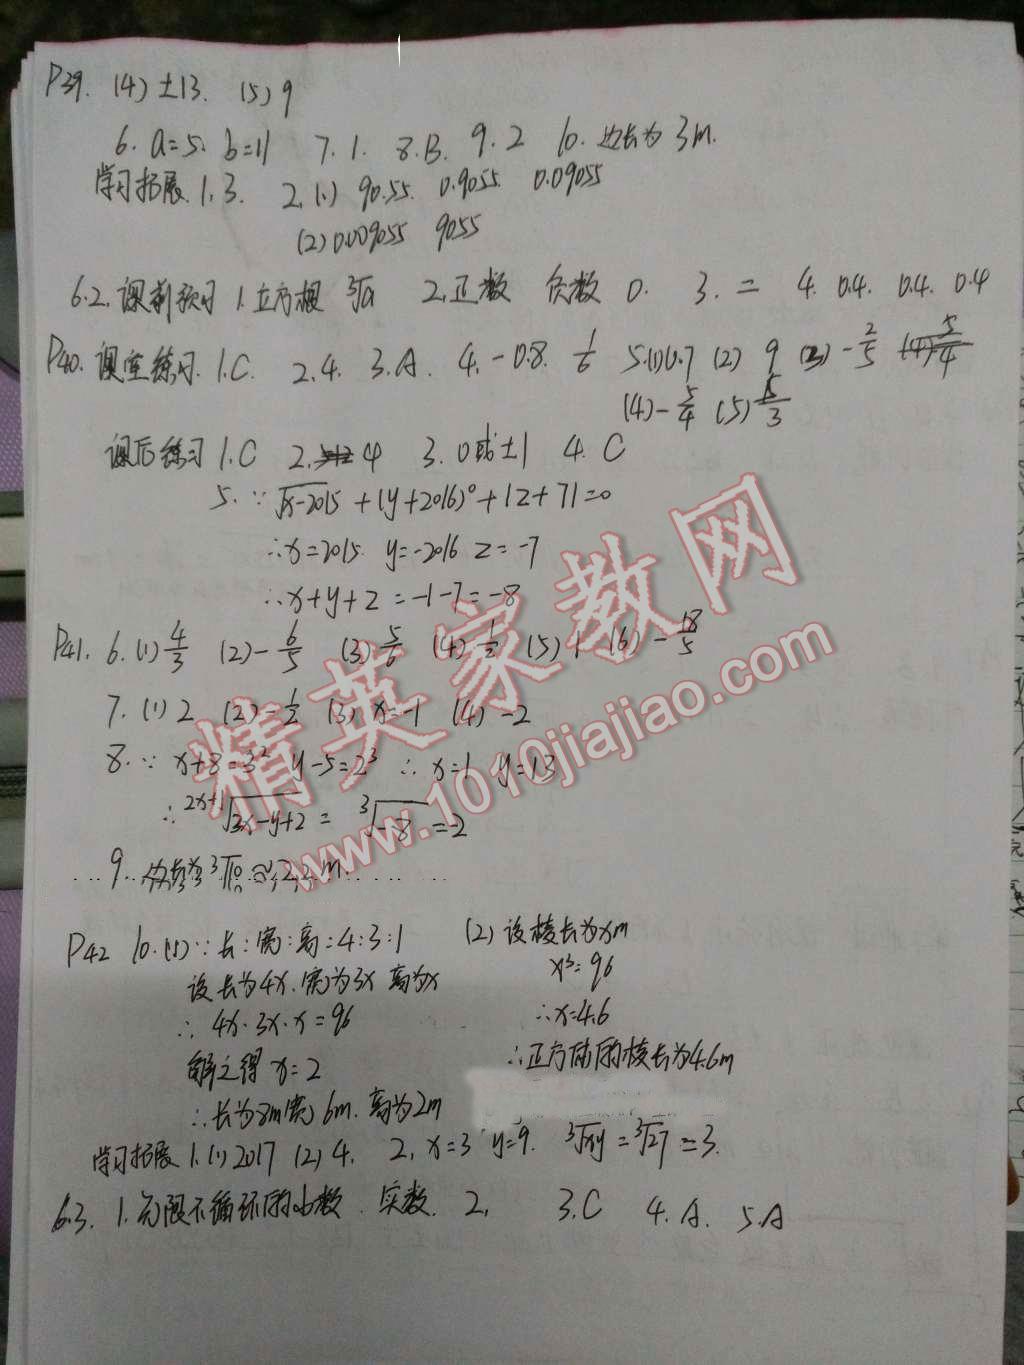 P39. (4) ±13. (5) 9
6. a=5. b=11 7. 1. 8. B. 9. 2 10. 边长为 3m.
学习拓展. 1. 3. 2. (1) 90.55. 0.9055. 0.09055
(2) 0.009055 9055
6.2. 课前预习 1. 立方根 ∛a 2. 正数 负数 0. 3. = 4. 0.4. 0.4. 0.4
P40. 课堂练习. 1. C. 2. 4. 3. A. 4. -0.8. 1/6 5. (1) 0.7 (2) 9 (3) -2/5
(4) -5/4 (5) /3
课后练习 1. C 2. 4 3. 0或±1 4. C
5. ∵ √x-2015 + (y+2016)° + |z+7|=0
∴x=2015. y=-2016 z=-7
∴x+y+z=-1-7=-8
P41. 6. (1) 4/3 (2) -6/5 (3) 5/6 (4) 1/2 (5) 1 (6) -18/5
7. (1) 2 (2) -1/2 (3) x=-1 (4) -2
8. ∵ x+8=3² y-5=2³ ∴ x=1 y=13
∴ ²ˣ⁺¹√3x-y+2 = ³√-8 =-2
9. ³√10 ≈2.2m.
P42 10. (1) ∵长:宽:高=4:3:1 (2) 设棱长为xm
设长为4x.宽为3x 高为x x³=96
∴ 4x·3x·x=96 ∴x=4.6
解之得 x=2 ∴正方体的棱长为4.6m
∴长为8m宽6m.高为2m
学习拓展 1. (1) 2017 (2) 4. 2. x=3 y=9. ³√xy = ³√27 =3.
6.3. 1. 无限不循环的小数. 实数. 2. 3. C 4. A. 5. A
精英家教网
www.1010jiajiao.com